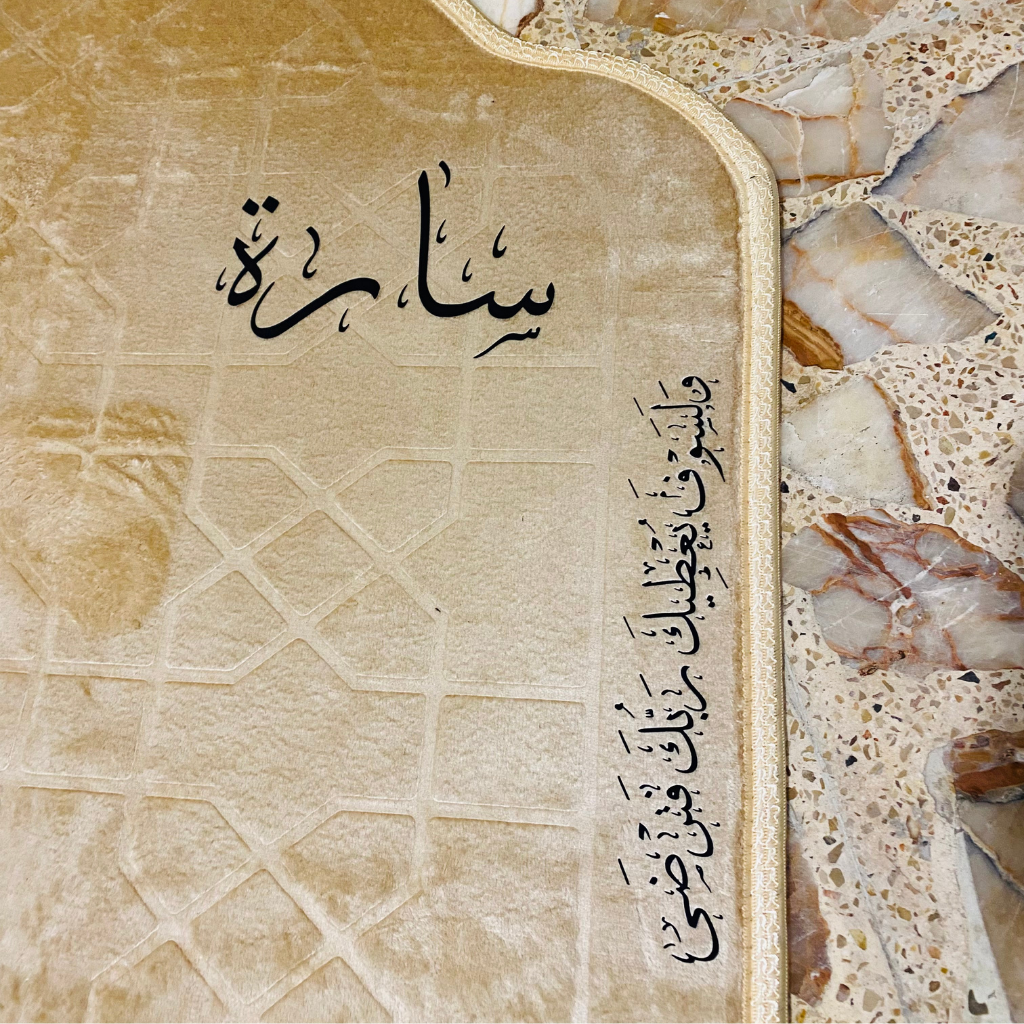 سارة
وَلَسَوْفَ يُعْطِيكَ رَبُّكَ فَتَرْضَىٰ